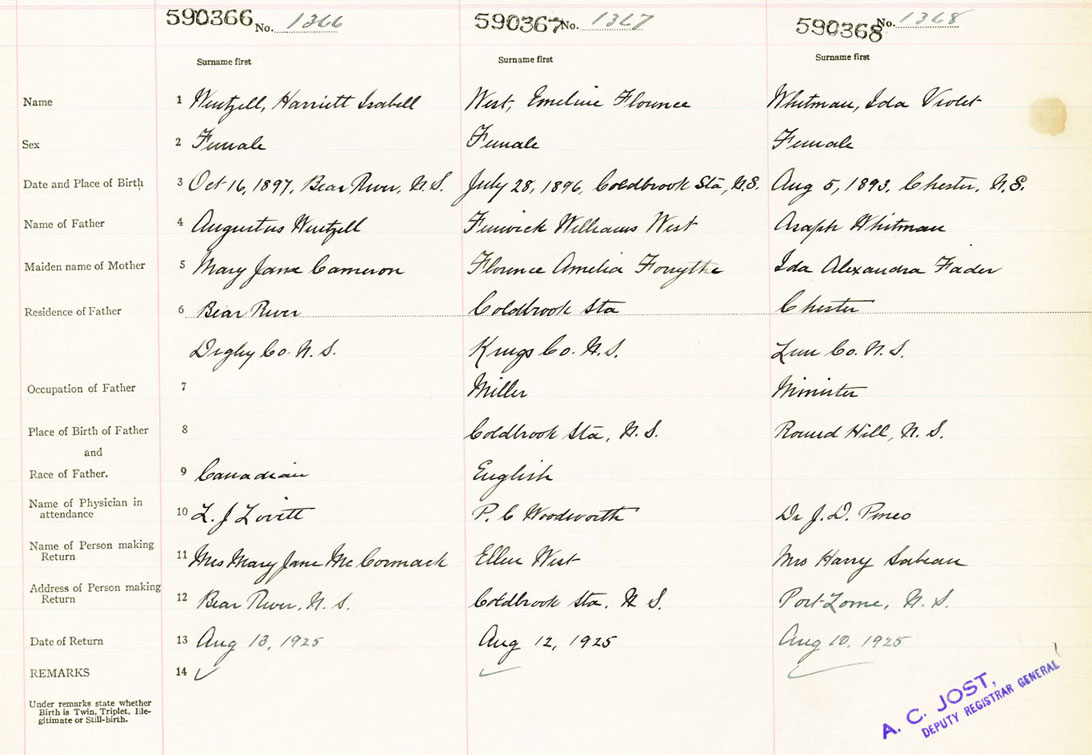 590366 No. 1366 590367 No. 1367 590368 No. 1368
Surname first Surname first Surname first
Name 1 Wentzell, Harriett Isabell West, Emeline Florence Whitman, Ida Violet
Sex 2 Female Female Female
Date and Place of Birth 3 Oct 16, 1897, Bear River, N.S. July 28, 1896, Coldbrook Sta, N.S. Aug 5, 1893, Chester, N.S.
Name of Father 4 Augustus Wentzell Fenwick Williams West Asaph Whitman
Maiden name of Mother 5 Mary Jane Cameron Florence Amelia Forsythe Ida Alexandra Fader
Residence of Father 6 Bear River Coldbrook Sta Chester
Digby Co. N.S. Kings Co. N.S. Lun Co. N.S.
Occupation of Father 7 Miller Minister
Place of Birth of Father 8 Coldbrook Sta, N.S. Round Hill, N.S.
and
Race of Father. 9 Canadian English
Name of Physician in
attendance 10 L. J Lovitt P. C Woodworth Dr J. D. Pineo
Name of Person making
Return 11 Mrs Mary Jane McCormack Ellen West Mrs Harry Sabean
Address of Person making
Return 12 Bear River, N.S. Coldbrook Sta, N S. Port Lorne, N.S.
Date of Return 13 Aug 13, 1925 Aug 12, 1925 Aug 10, 1925
REMARKS 14
Under remarks state whether
Birth is Twin, Triplet, Ille-
gitimate or Still-birth.
A. C. JOST,
DEPUTY REGISTRAR GENERAL